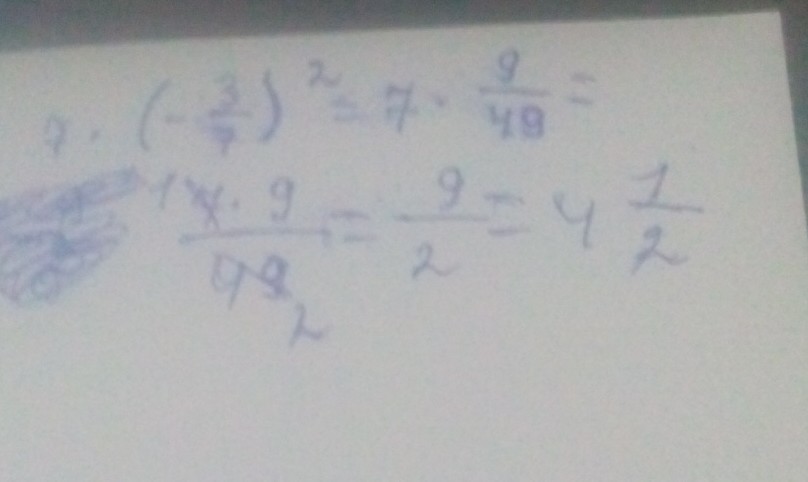 7 · (- 3/7)² = 7 · 9/49 =
1 7 · 9/49 2 = 9/2 = 4 1/2